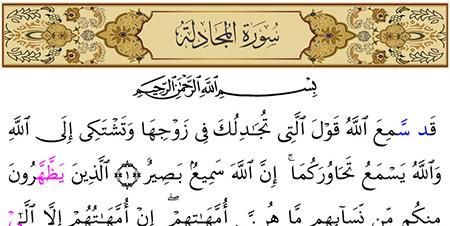 سورة المجادلة
بِسْمِ اللَّهِ الرَّحْمَٰنِ الرَّحِيمِ
قَد سَّمِعَ اللَّهُ قَوْلَ الَّتِى تُجَـٰدِلُكَ فِى زَوْجِهَا وَتَشْتَكِى إِلَى اللَّهِ
وَاللَّهُ يَسْمَعُ تَحَاوُرَكُمَا ۚ إِنَّ اللَّهَ سَمِيعٌۢ بَصِيرٌ ﴿١﴾ الَّذِينَ يَظَّهَّرُونَ
مِنكُم مِّن نِّسَآئِهِم مَّا هُنَّ أُمَّهَـٰتِهِمْ ۖ إِنْ أُمَّهَـٰتُهُمْ إِلَّا